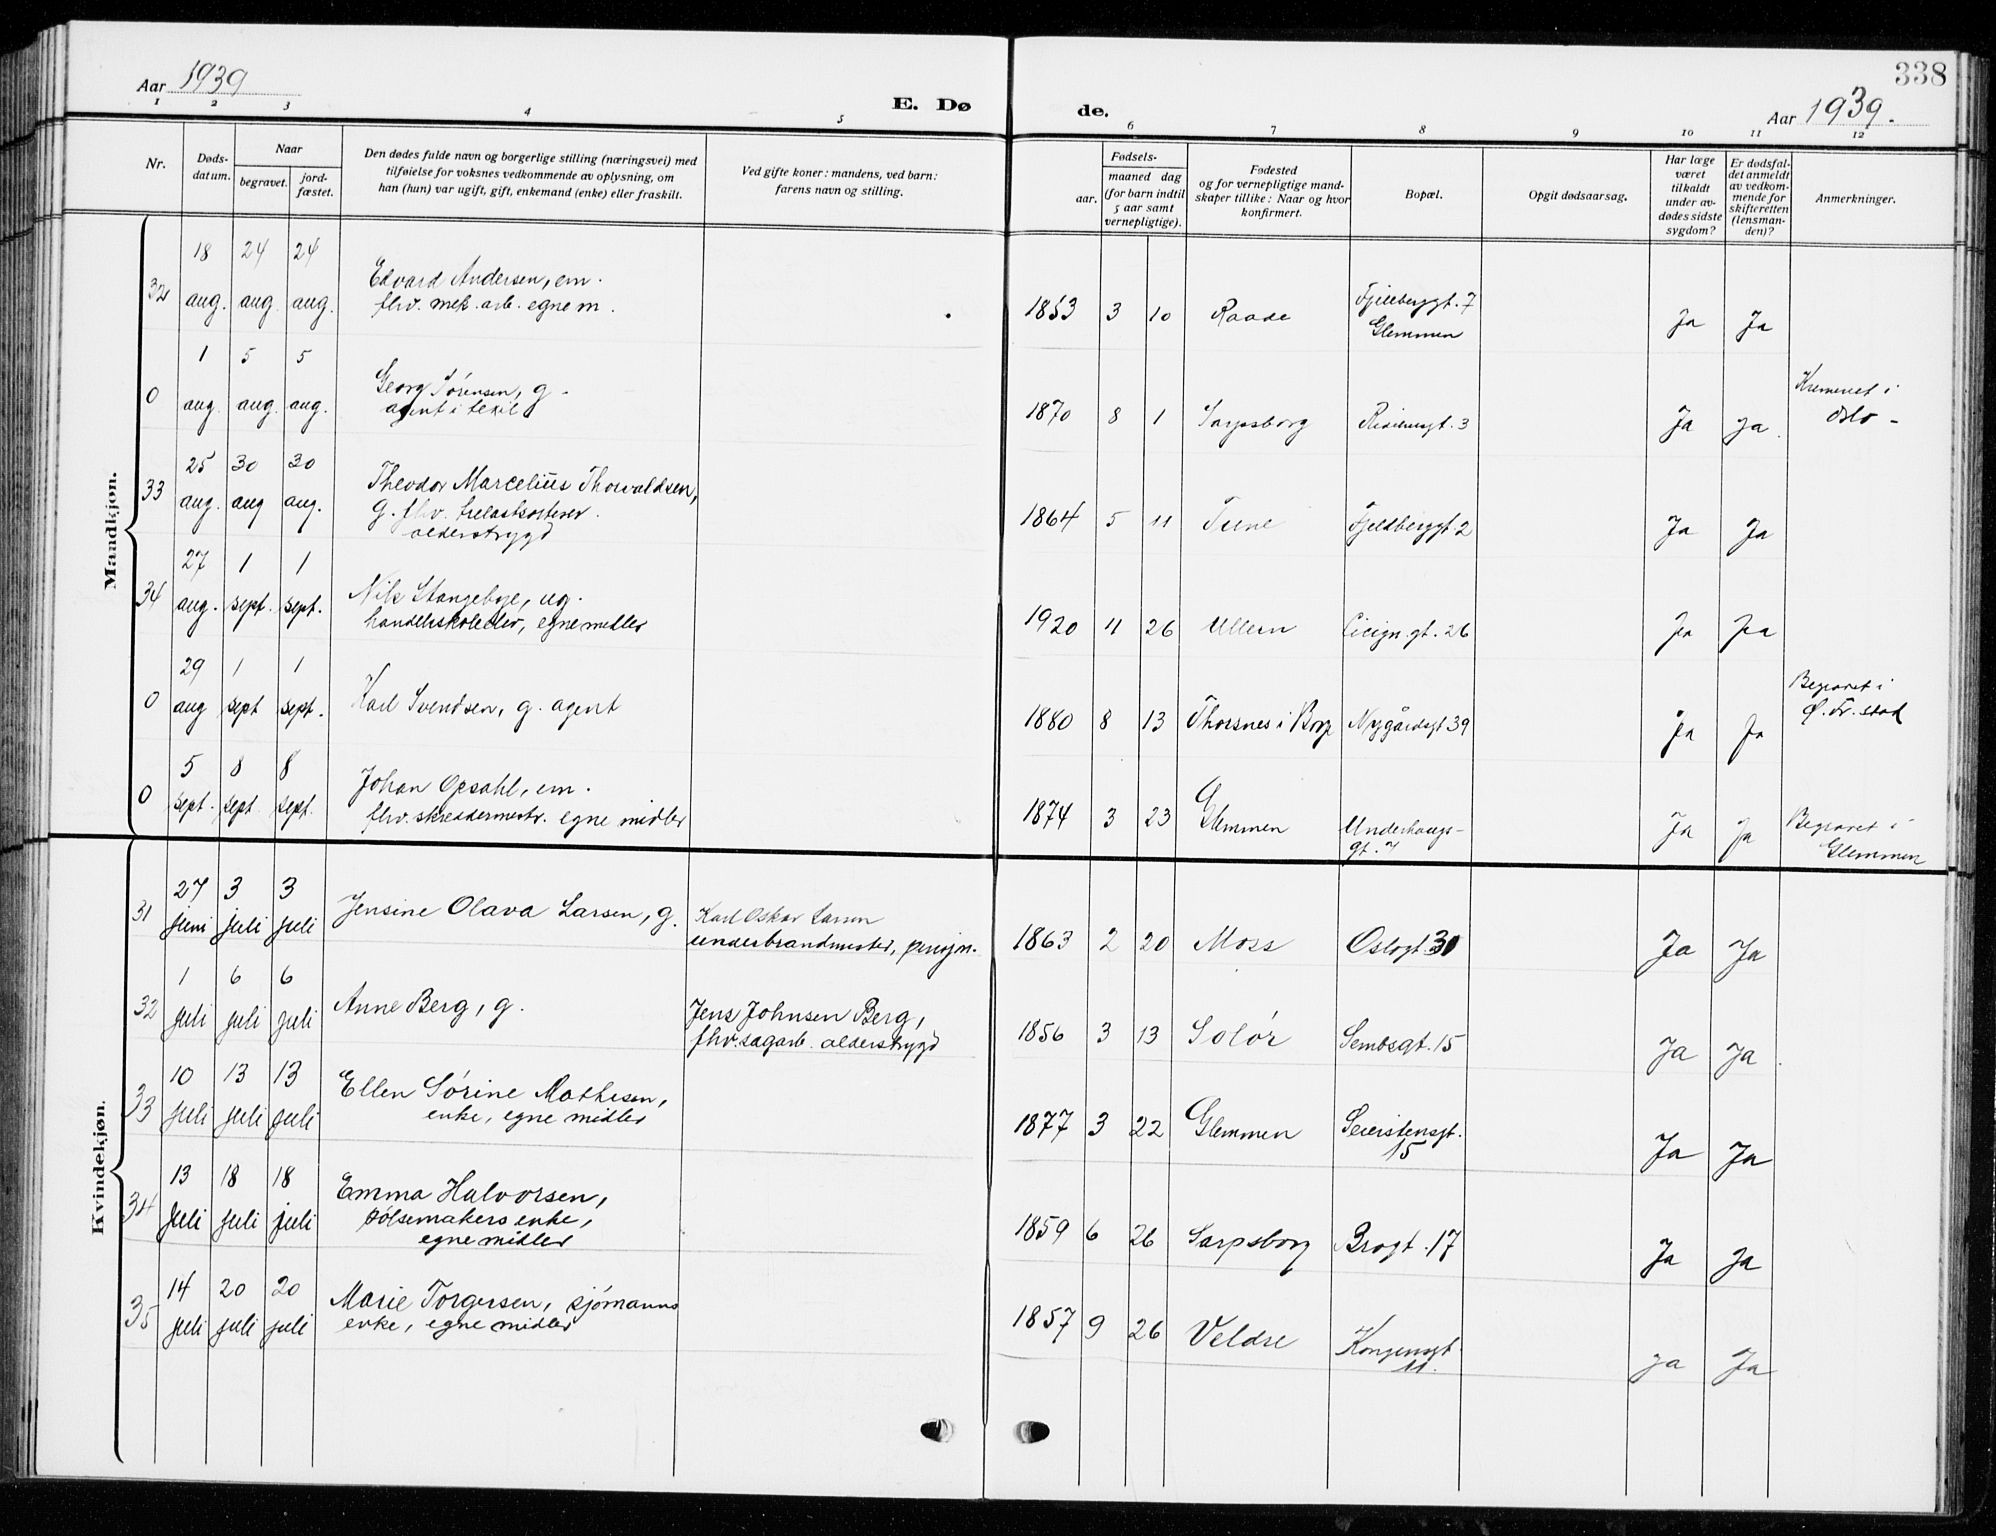 338
Aar 1939
E. Dø
de.
Aar 1939.
1 2 3 4 5 6 7 8 9 10 11 12
Nr.
Døds-
datum.
Naar
begravet.
jord-
fæstet.
Den dødes fulde navn og borgerlige stilling (næringsvei) med
tilføielse for voksnes vedkommende av oplysning, om
han (hun) var ugift, gift, enkemand (enke) eller fraskilt.
Ved gifte koner: mandens, ved barn:
farens navn og stilling.
Fødsels-
aar.
maaned dag
(for barn indtil
5 aar samt
vernepligtige).
Fødested
og for vernepligtige mand-
skaper tillike: Naar og hvor
konfirmert.
Bopæl.
Opgit dødsaarsag.
Har læge
været
tilkaldt
under av-
dødes sidste
sygdom?
Er dødsfal-
det anmeldt
av vedkom-
mende for
skifteretten
(lensman-
den)?
Anmerkninger.
Mandkjøn.
18 24 24
32 aug. aug. aug.
Edvard Andersen, em.
fhv. mek. arb. egne m.
1853 3 10 Raade
Fjeldberggt. 7
Glemmen
Ja Ja
1 5 5
0 aug. aug. aug.
Georg Sørensen, g.
agent i tekil
1870 8 1 Sarpsborg gt. 3 Ja Ja.
Kremeret i
Oslo -
25 30 30
33 aug. aug aug.
Theodor Marcelius Thorvaldsen,
g. fhv. trelastsorterer.
alderstrygd
1864 5 11 Tune Fjeldberggt. 2 Ja Ja
27 1 1
34 aug. sept. sept.
Nils Stangebye, ug.
handelsskoleelev, egne midler
1920 11 26 Ullern Cicign.gt. 26 Ja Ja
29 1 1
0 aug sept sept.
Karl Svendsen, g. agent
1880 8 13 Thorsnes i Borge Nygårdsgt 39 Ja Ja
Begravet i
Ø. Fr.stad
5 8 8
0 sept. sept. sept.
Johan Opsahl, em.
fhv. skreddermestr. egne midler
1874 3 23 Glemmen
Underhaugs-
gt. 7
Ja Ja
Begravet i
Glemmen
Kvindekjøn.
27 3 3
31 juni juli juli
Jensine Olava Larsen, g.
Karl Oskar Larsen
underbrandmester, pensjn.
1863 2 20 Moss Oslogt. 30 Ja Ja
1 6 6
32 juli juli juli
Anne Berg, g.
Jens Johnsen Berg,
fhv. sagarb. alderstrygd
1856 3 13 Solør Sembsgt. 15 Ja Ja
10 13 13
33 juli juli juli
Ellen Sørine Mathisen,
enke, egne midler
1877 3 22 Glemmen
Seierstensgt.
15
Ja Ja
13 18 18
34 juli juli juli
Emma Halvorsen,
pølsemakers enke,
egne midler
1859 6 26 Sarpsborg Brogt. 17 Ja Ja
14 20 20
35 juli juli juli
Marie Torgersen, sjømanns
enke, egne midler
1857 9 26 Veldre
Kongensgt.
11.
Ja Ja